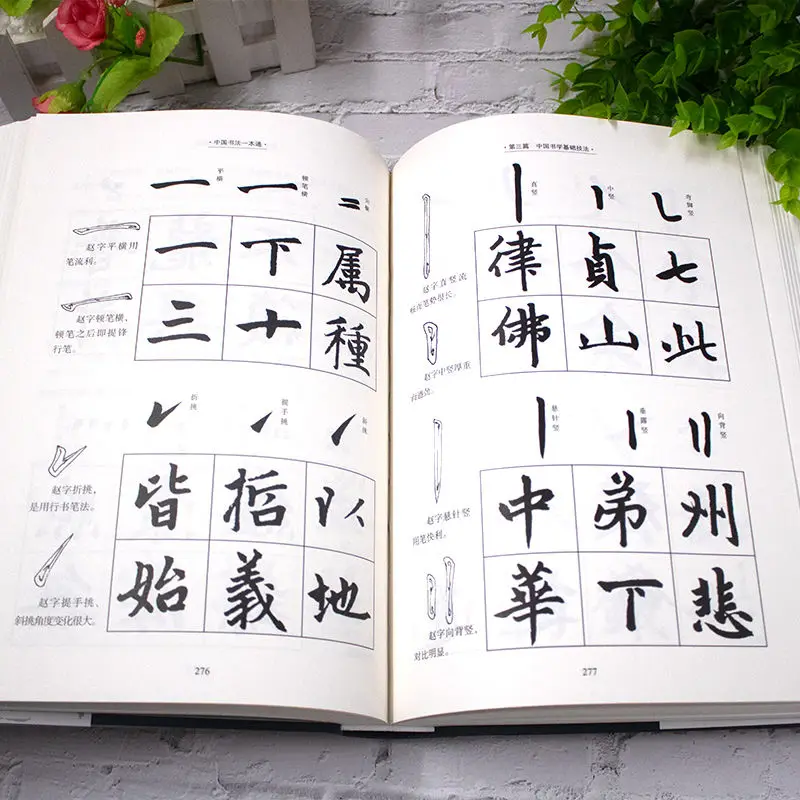 ·中国书法一本通·
平横
顿笔横
赵字平横用
笔流利。
赵字顿笔横，
顿笔之后即提锋
行笔。
一 下 属
三 十 種
折挑
提手挑
斜挑
赵字折挑，
是用行书笔法。
赵字提手挑、
斜挑角度变化很大。
皆 哲 以
始 義 地
276
·第三篇 中国书学基础技法·
直竖
中竖
弯胸竖
赵字直竖流
赵字中竖厚重
律 貞 七
佛 山 此
悬针竖
垂露竖
向背竖
赵字悬针竖
用笔快利。
赵字向背竖，
对比明显。
中 弟 州
華 下 悲
277